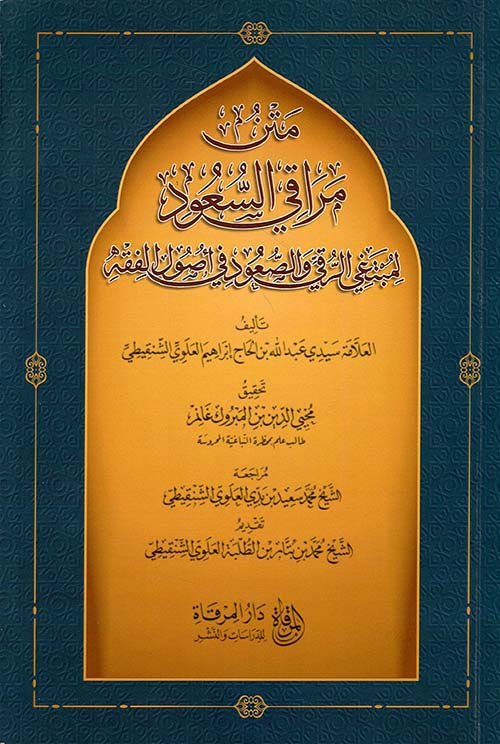 مَتْنُ
مَرَاقِي السُّعُودِ
لِمُبْتَغِي الرُّقِيِّ وَالصُّعُودِ فِي أُصُولِ الفِقْهِ
تَأليفُ
العَلَّامَة سِيدِي عَبد الله بن الحَاج إبْرَاهِيم العَلَوِيّ الشِّنْقِيطِيّ
تَحقِيقُ
مُحْيِي الدِّين بن المَبْرُوك غَانِم
طالب علم بمحظرة النباغية المحروسة
مُرَاجَعَة
الشَّيْخ مُحَمَّد سَعِيد بن بَدِّي العَلَوِيّ الشِّنْقِيطِيّ
تَقْدِيمُ
الشَّيْخ مُحَمَّد بن بتَّار بن الطُّلْبَة العَلَوِيّ الشِّنْقِيطِيّ
المرقاة
دَارُ المِرْقَاةِ
لِلدِّرَاسَاتِ وَالنَّشْرِ